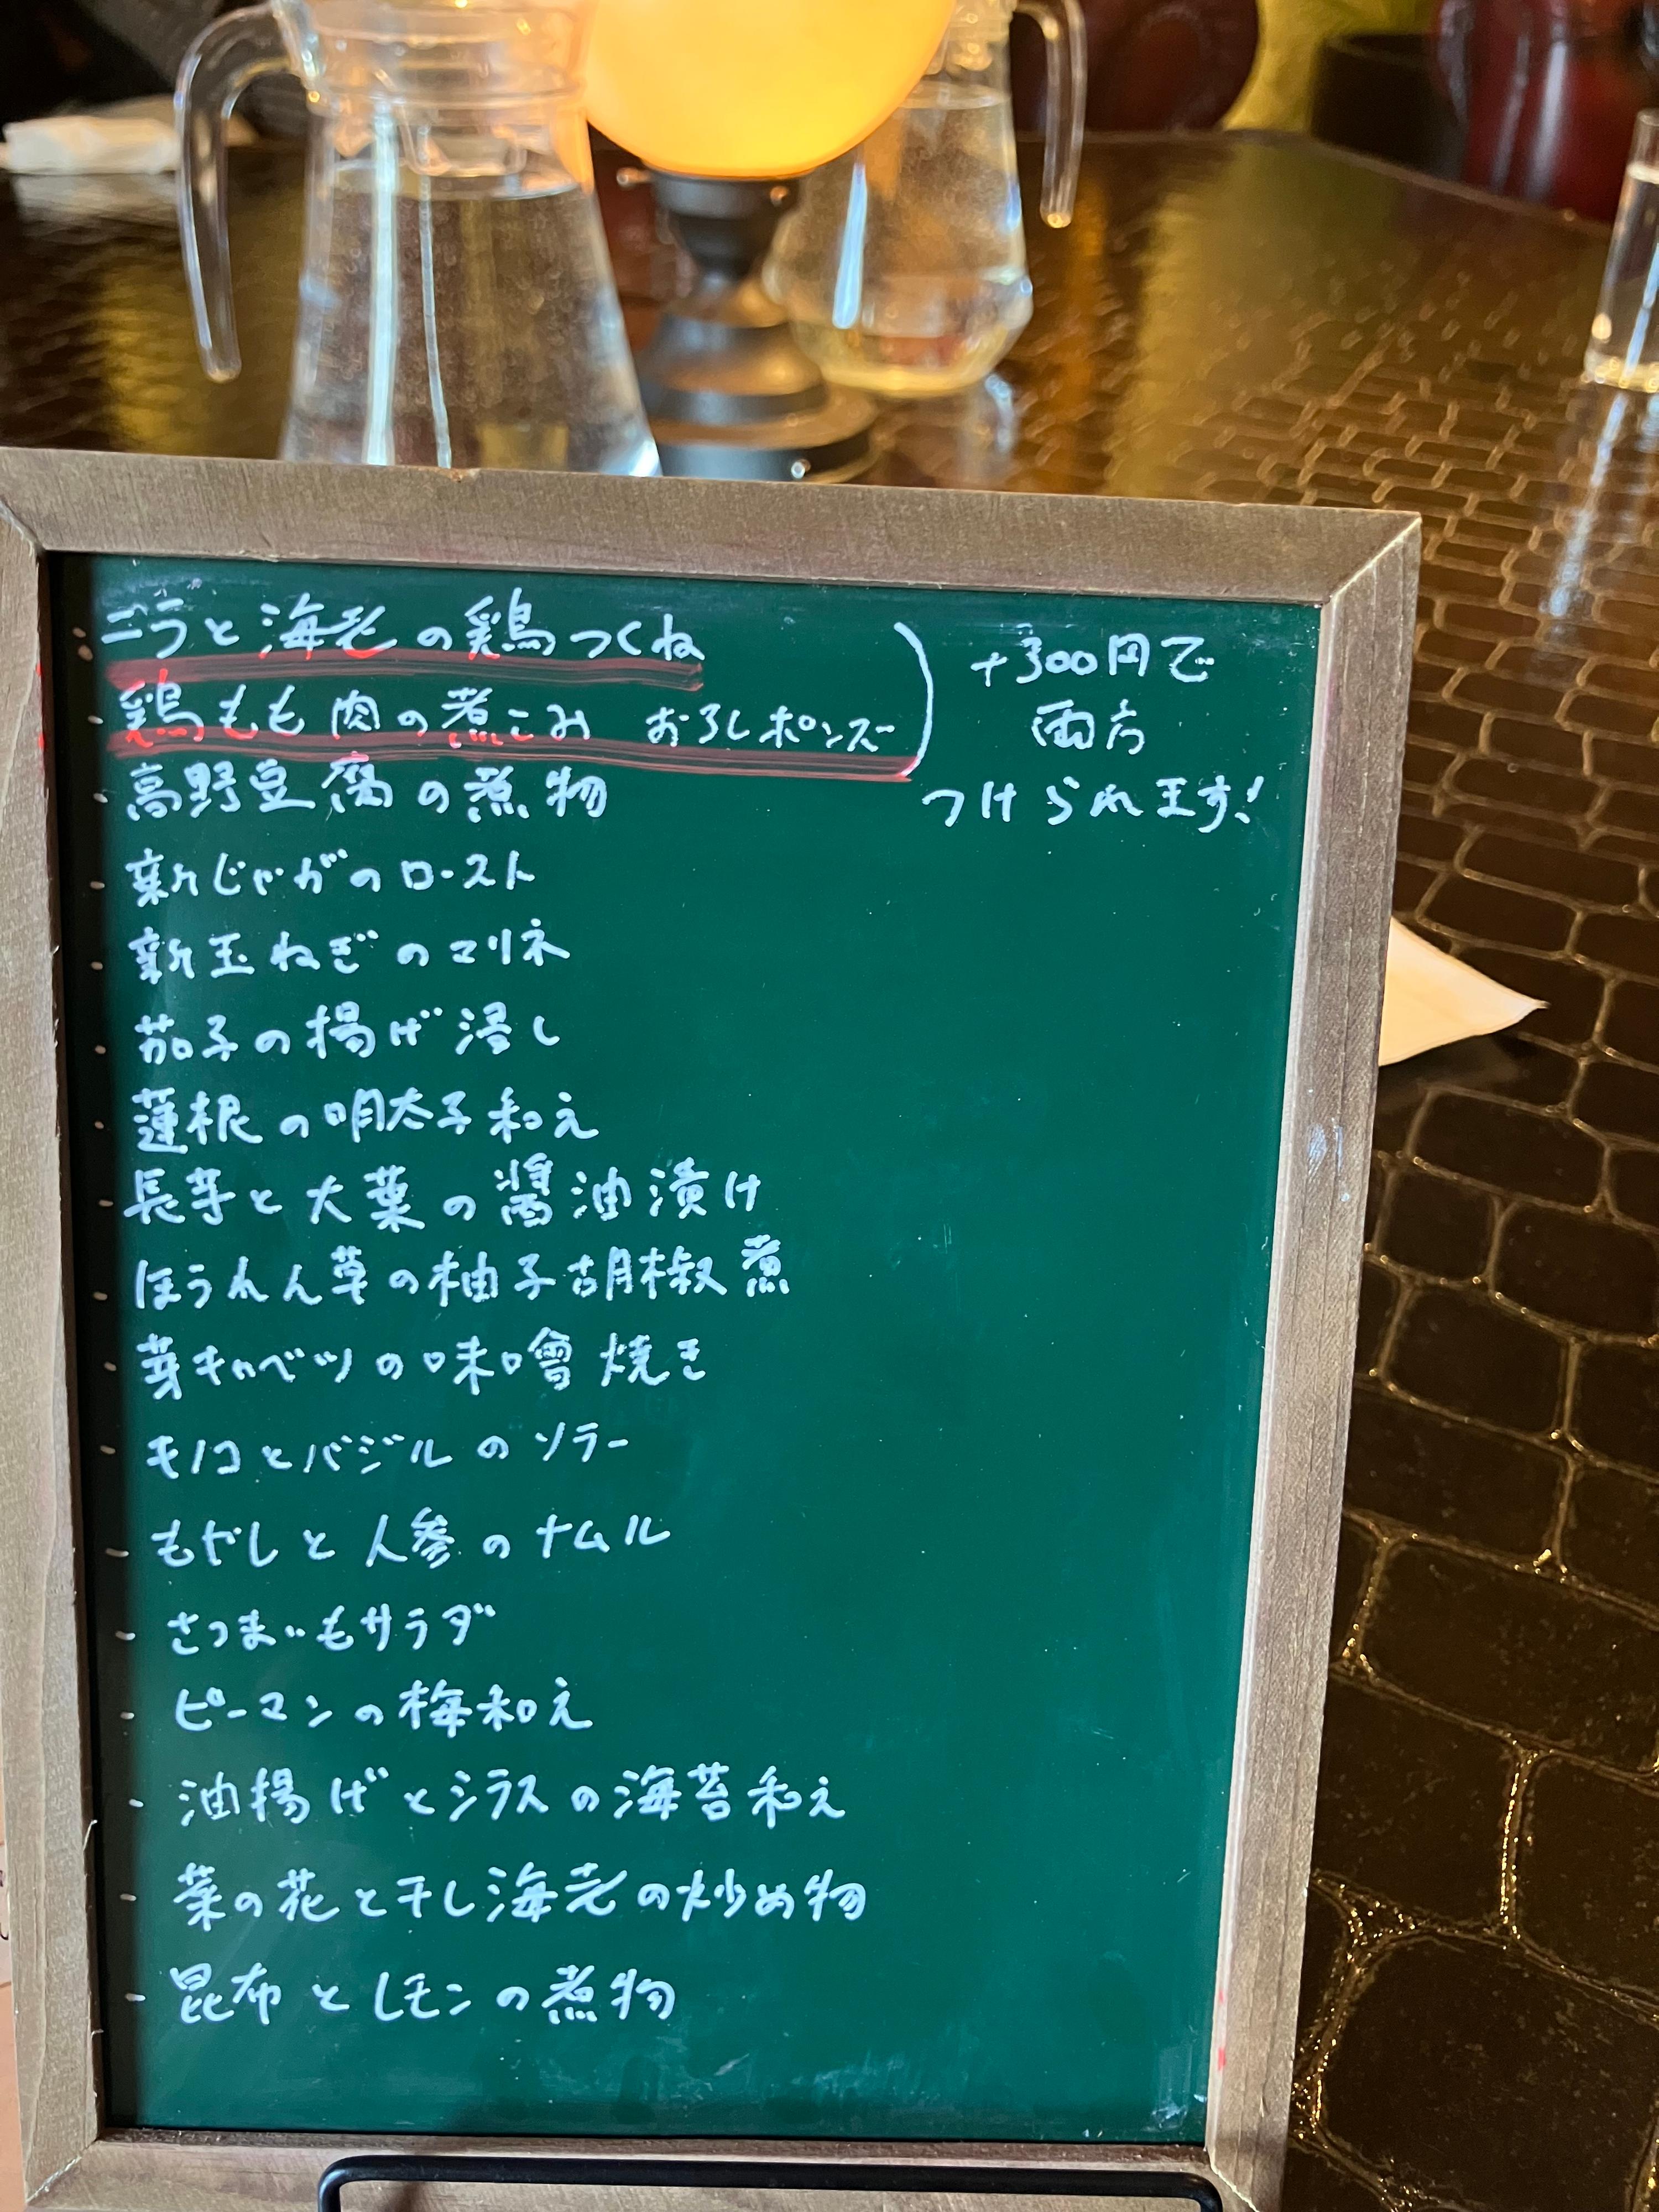 ニラと海老の鶏つくね
鶏もも肉の煮こみ おろしポンズ
+300円で
両方
つけられます!
高野豆腐の煮物
新じゃがのロースト
新玉ねぎのマリネ
茄子の揚げ浸し
蓮根の明太子和え
長芋と大葉の醤油漬け
ほうれん草の柚子胡椒煮
芽キャベツの味噌焼き
キノコとバジルのソテー
もやしと人参のナムル
さつまいもサラダ
ピーマンの梅和え
油揚げとシラスの海苔和え
菜の花と干し海老の炒め物
昆布とレモンの煮物